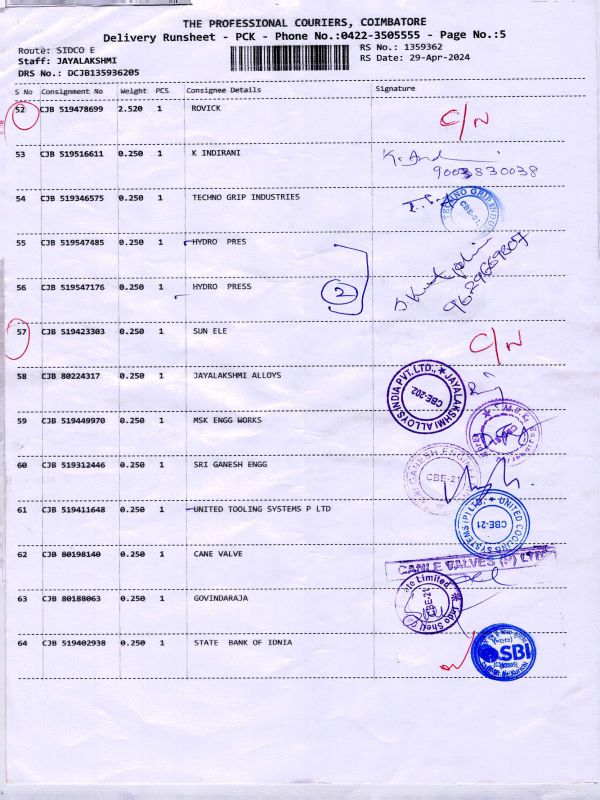 THE PROFESSIONAL COURIERS, COIMBATORE
Delivery Runsheet - PCK - Phone No.:0422-3505555 - Page No.:5
Route: SIDCO E
RS No.: 1359362
Staff: JAYALAKSHMI
RS Date: 29-Apr-2024
DRS No.: DCJB135936205
S No Consignment No Weight PCS Consignee Details Signature
52 CJB 519478699 2.520 1 ROVICK C/N
53 CJB 519516611 0.250 1 K INDIRANI
9003830038
54 CJB 519346575 0.250 1 TECHNO GRIP INDUSTRIES
CBE-21.
55 CJB 519547485 0.250 1 HYDRO PRES
56 CJB 519547176 0.250 1 HYDRO PRESS 2
57 CJB 519423303 0.250 1 SUN ELE C/N
58 CJB 80224317 0.250 1 JAYALAKSHMI ALLOYS
JAYALAKSHMI ALLOYS INDIA PVT. LTD.,
CBE-202.
59 CJB 519449970 0.250 1 MSK ENGG WORKS
60 CJB 519312446 0.250 1 SRI GANESH ENGG
CBE-21
61 CJB 519411648 0.250 1 UNITED TOOLING SYSTEMS P LTD
CBE-21
62 CJB 80198140 0.250 1 CANE VALVE
CANLE VALVES (P) LTD
63 CJB 80188063 0.250 1 GOVINDARAJA
CBE-21
64 CJB 519402938 0.250 1 STATE BANK OF IDNIA
SBI